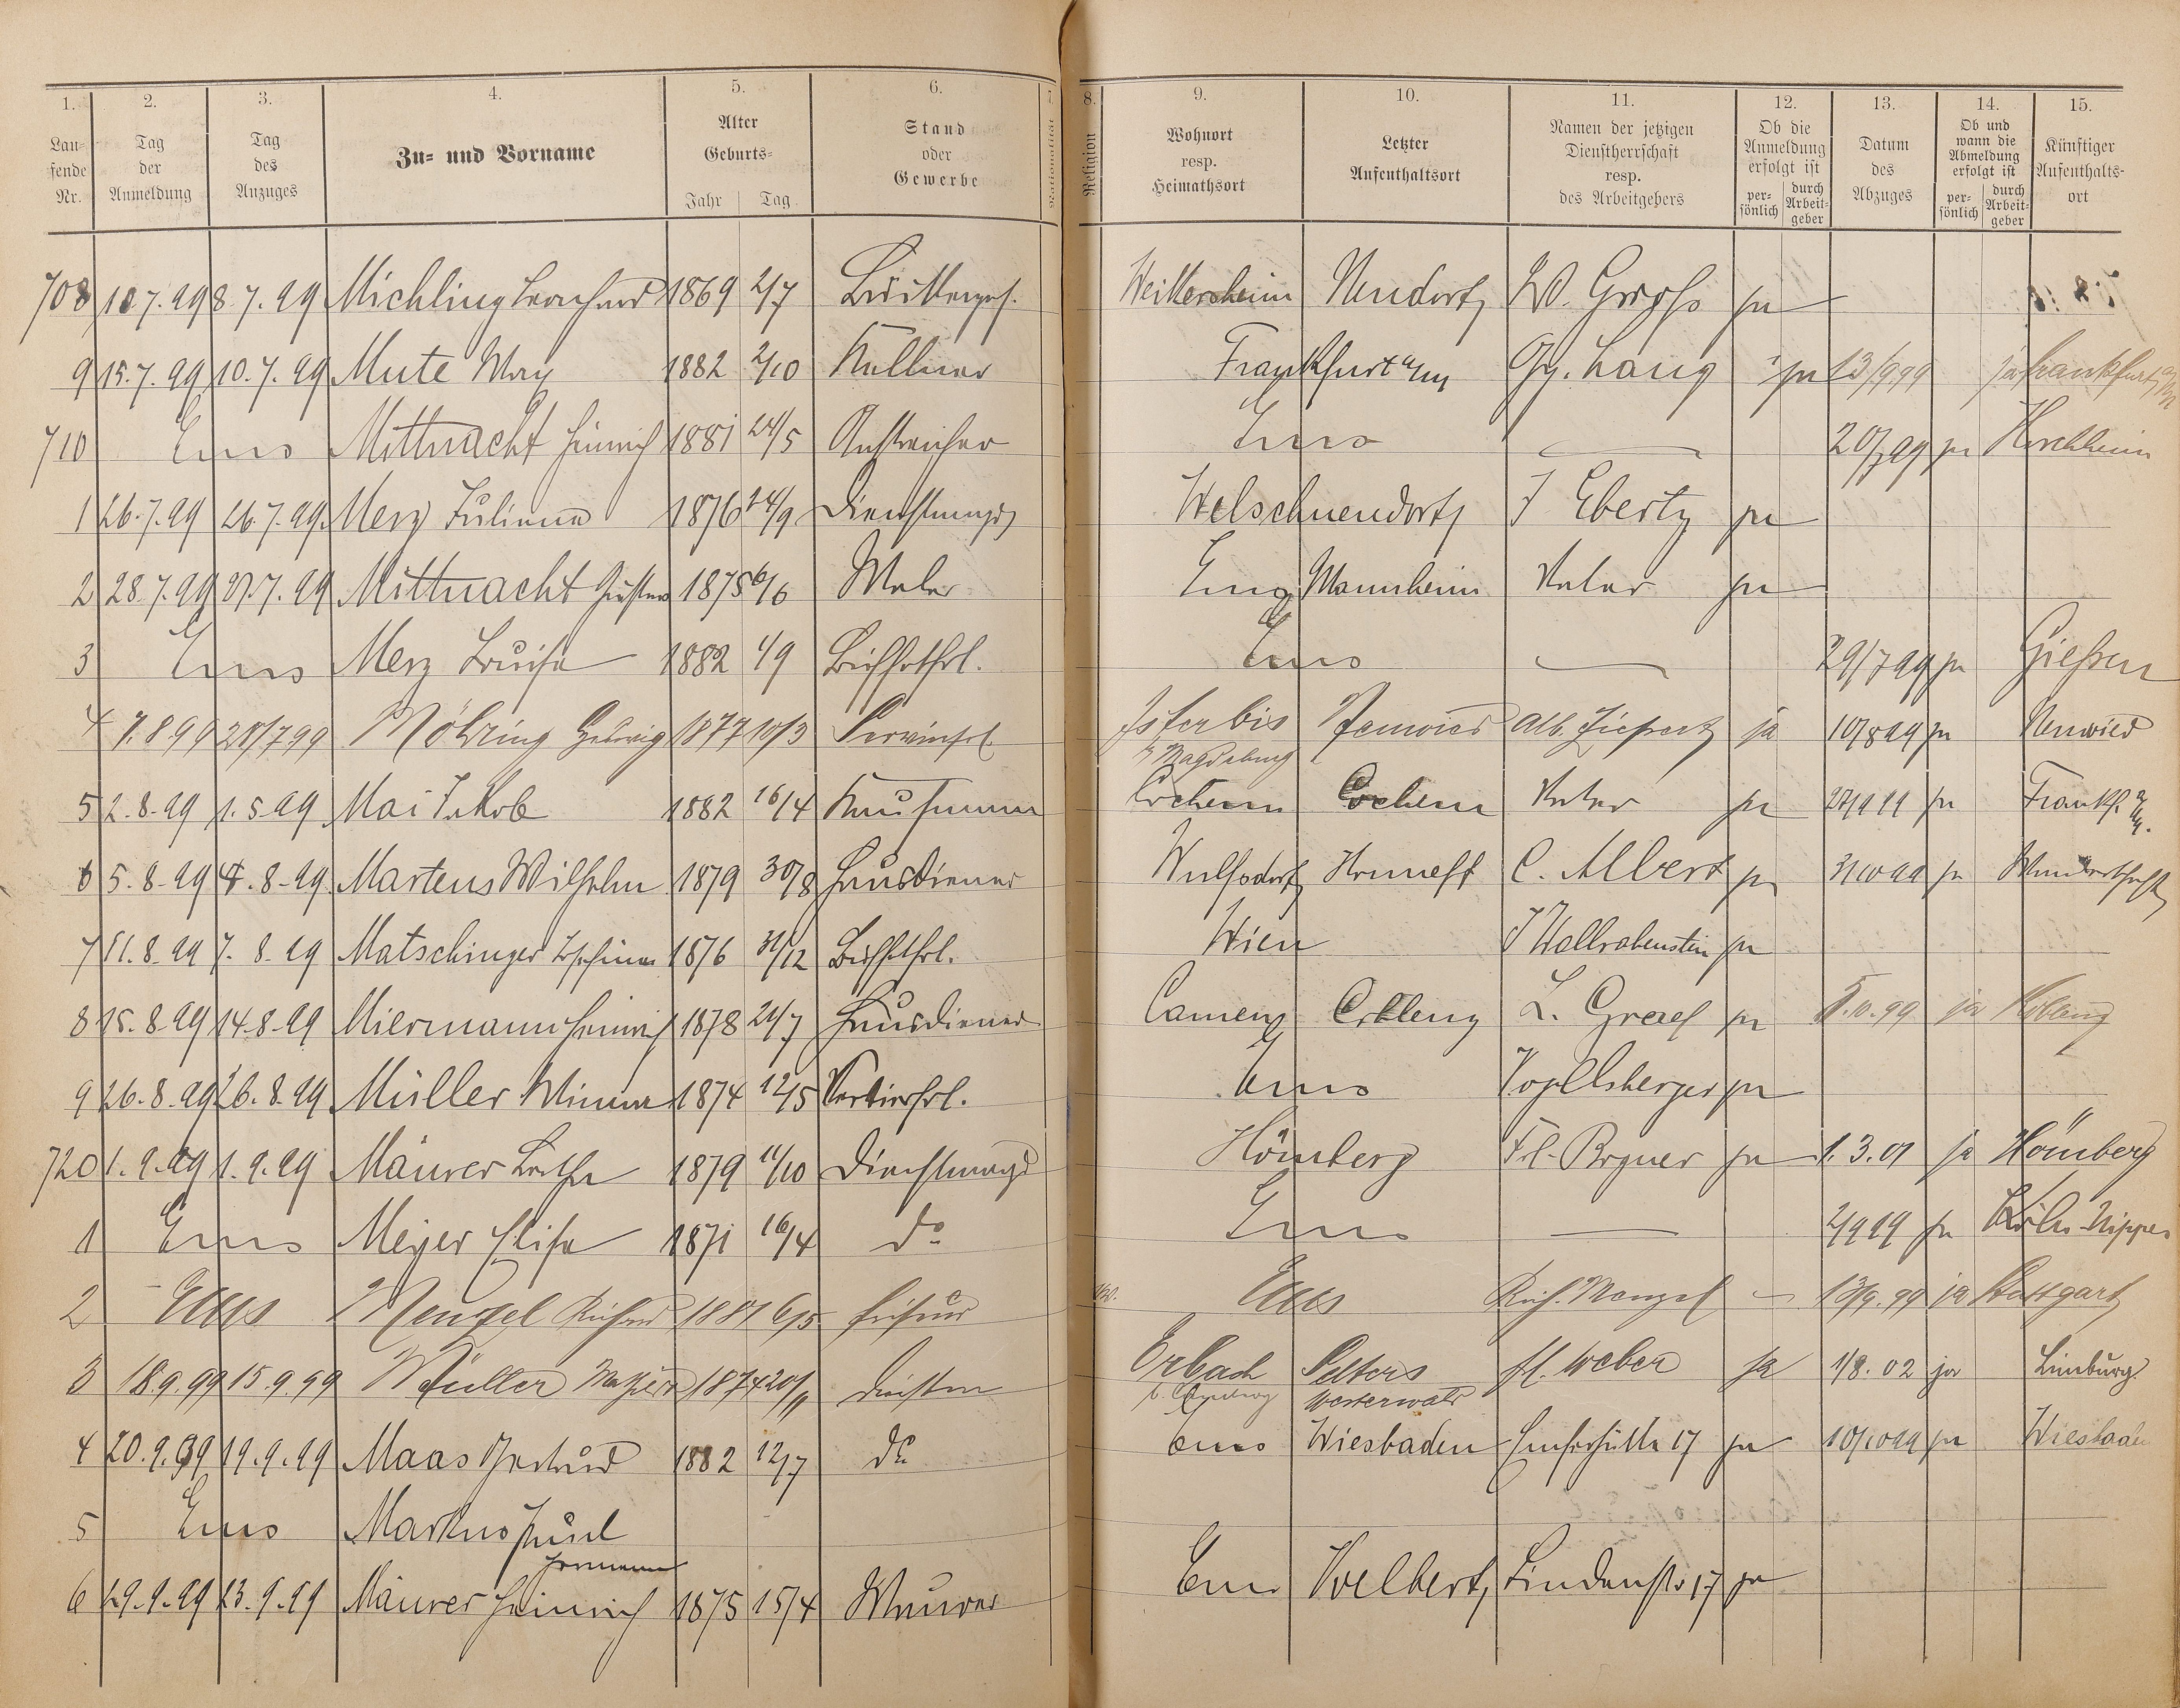 1. 2. 3. 4. 5. 6. 7. 8. 9. 10. 11. 12. 13. 14. 15.
Laufende Nr. Tag der Anmeldung Tag des Anzuges Zu- und Vorname Alter Geburts- Jahr Tag Stand oder Gewerbe Nationalität Religion Wohnort resp. Heimathsort Letzter Aufenthaltsort Namen der jetzigen Dienstherrschaft resp. des Arbeitgebers Ob die Anmeldung erfolgt ist persönlich durch Arbeitgeber Datum des Abzuges Ob und wann die Abmeldung erfolgt ist persönlich durch Arbeitgeber Künftiger Aufenthaltsort
708 10.7.99 8.7.99 Michling Leonhard 1869 2/7 Weikersheim Neudorf W. ja
9 15.7.99 10.7.99 Mute Max 1882 2/10 Kellner Frankfurt a/m Gg. Lang ja 13/9 99 ja Frankfurt a/M
710 Ems Mittnacht Heinrich 1881 24/5 Anstreicher Ems — 20/7 99 ja
1 26.7.99 26.7.99 Merz Juliana 1876 24/9 Dienstmagd Welschneudorf J Eberty ja
2 28.7.99 27.7.99 Mittnacht Gustav 1875 6/6 Maler Ems Mannheim Vater ja
3 Ems Merz Louise 1882 1/9 Büffetfrl. Ems — 29/7 99 ja Gießen
4 7.8 99 28/7 99 Möhring Hedwig 1877 10/3 Servierfrl Isterbies Neuwied Alb. ja 10/8 99 ja Neuwied
b Magdeburg
5 2.8.99 1.8.99 Mai Jakob 1882 16/4 Kaufmann Cochem Cochem Vater ja 27/9 99 ja Frankf. a/M.
6 5.8.99 4.8.99 Martens Wilhelm 1879 30/8 Hausdiener Wulfsdorf Honneff C. Albert ja 31/10 99 ja Wanderschaft
7 11.8.99 7.8.99 Matschinger Josefine 1876 31/12 Büffetfrl. Wien J Wallrabenstein ja
8 15.8.99 14.8.99 Miermann Heinrich 1878 21/7 Hausdiener Camenz Coblenz L. Graef ja 5.10.99 ja Koblenz
9 26.8.99 26.8.99 Müller Minna 1874 12/5 Servierfrl. Ems Vogelsberger ja
720 1.9.99 1.9.99 Mäurer 1879 11/10 Dienstmagd Hömberg Frl. ja 1.3.01 ja Hömberg
1 Ems Meyer Elise 1871 16/4 do Ems — 2/9 99 ja Köln-Nippes
2 Ems Menzel Richard 1881 6/5 Friseur Ems Rich. Menzel — 13/9.99 ja Stuttgart
3 18.9.99 15.9.99 Müller 1874 20/11 Erbach Selters Fl. Weber ja 1/8.02 ja Limburg
Westerwald
4 20.9.99 19.9.99 Maas Gertrud 1882 12/7 do Ems Wiesbaden Emserhütte 17 ja 10/10 99 ja Wiesbaden
5 Ems Markus
Hermann
6 29.9.99 23.9.99 Mäurer Heinrich 1875 15/4 Maurer Ems Velbert Lindenstr 17 ja